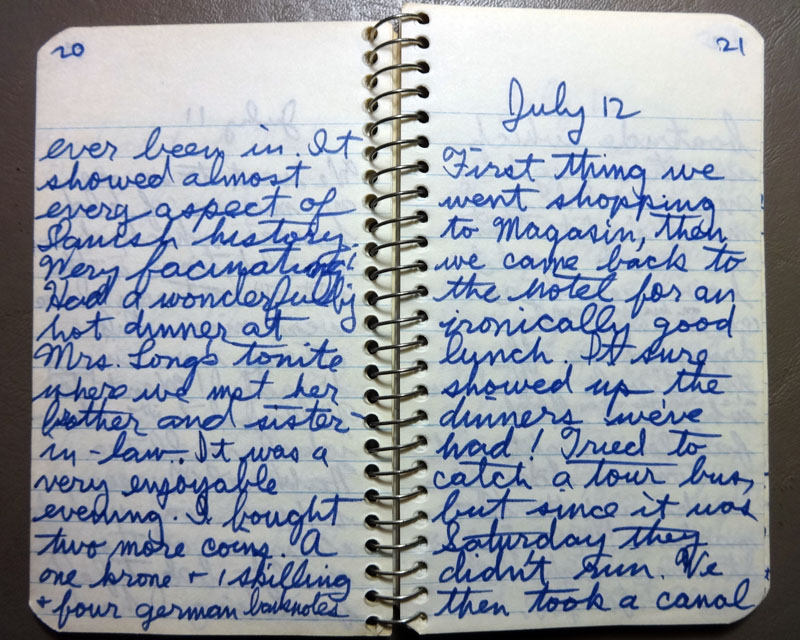 20
ever been in. It
showed almost
every aspect of
Danish history.
Very facinating!
Had a wonderful big
hot dinner at
Mrs. Longs tonite
where we met her
brother and sister-
in-law. It was a
very enjoyable
evening. I bought
two more coins. A
one krone + 1 skilling
+ four german banknotes
21
July 12
First thing we
went shopping
to Magasin, then
we came back to
the hotel for an
ironically good
lynch. It sure
showed up the
dinners we've
had! Tried to
catch a tour bus,
but since it was
Saturday they
didn't run. We
then took a canal